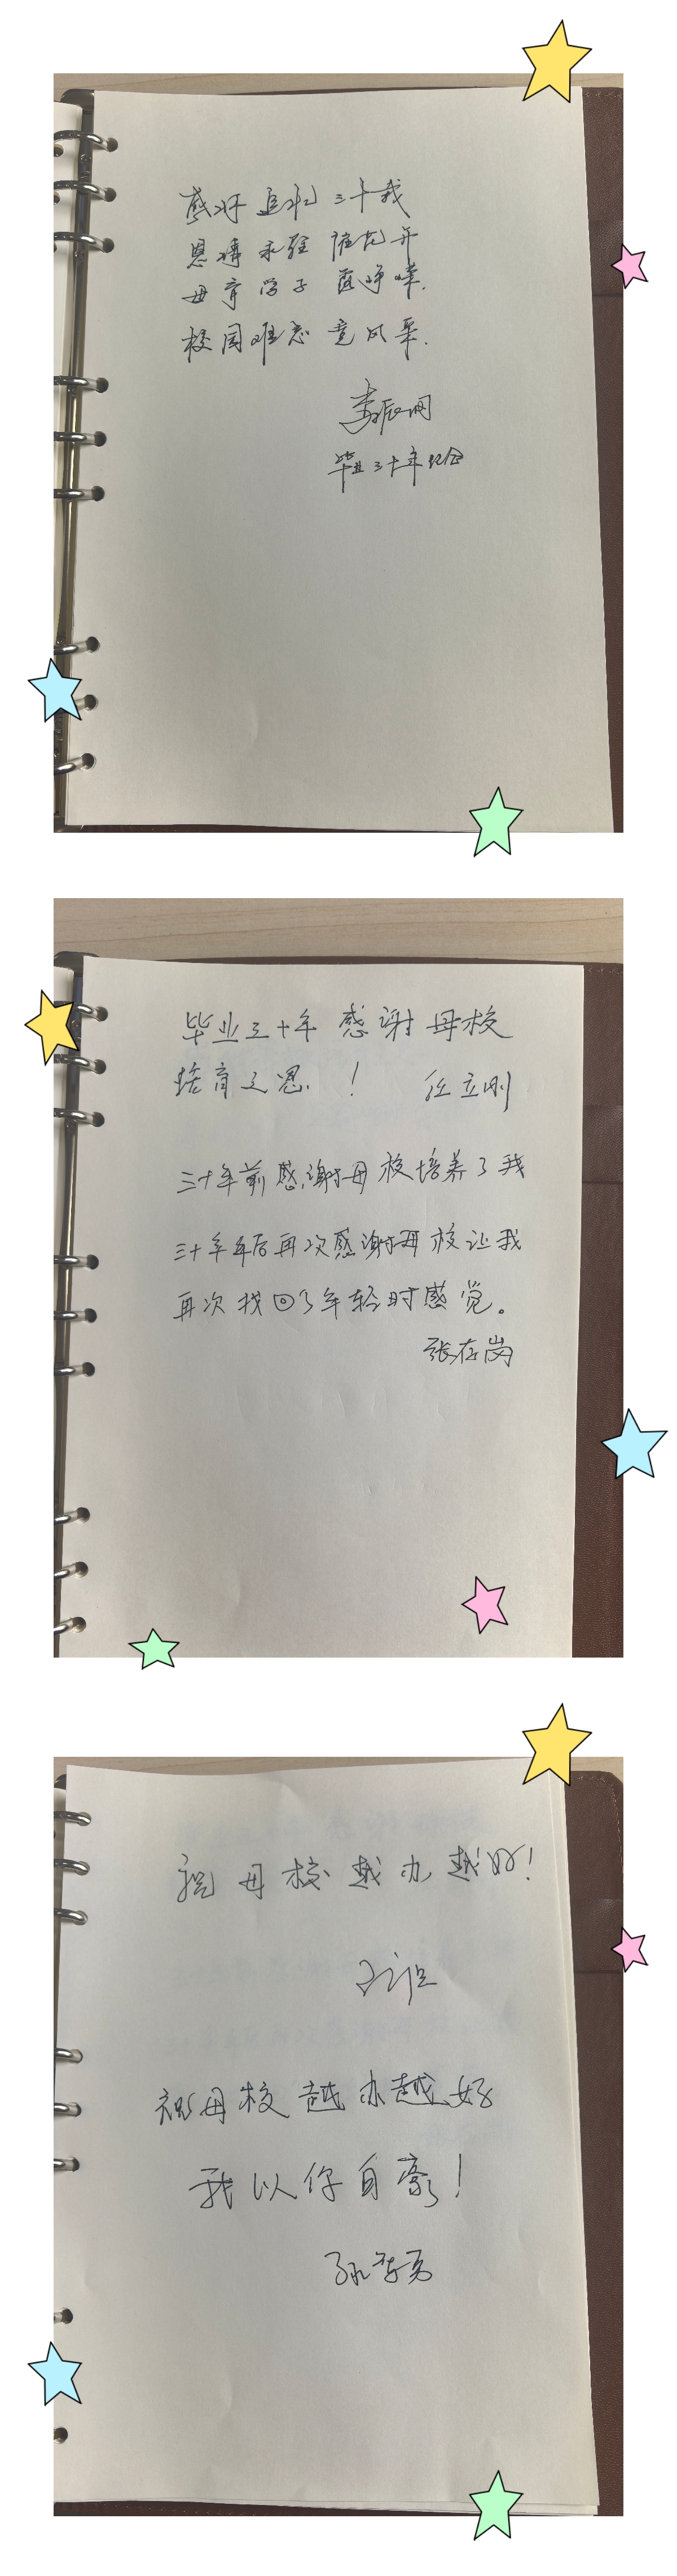 感 追忆 三十载
恩 永 花开
母育学子
校园难忘 竟风采.
李振刚
毕业三十年纪念
毕业三十年 感谢母校
培育之恩 ! 任立刚
三十年前感谢母校培养了我
三十年后再次感谢母校让我
再次找回了年轻时感觉。
张存岗
祝母校越办越好!
祝母校越办越好
我以你自豪!